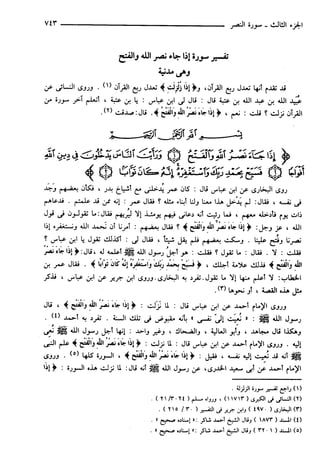 الجزء الثالث - سورة النصر ٧٤٣
تفسير سورة إذا جاء نصر الله والفتح
وهى مدنية
قد تقدم أنها تعدل ربع القرآن، و﴿ إذا زلزلت ﴾ تعدل ربع القرآن (١) . وروى النسائى عن
عُبيد الله بن عبد الله بن عتبة قال : قال لى ابن عباس : يا بن عتبة ، أتعلم آخر سورة من
القرآن نزلت ؟ قلت : نعم ، ﴿ إِذَا جَاءَ نَصْرُ اللَّهِ وَالْفَتْحُ ﴾ . قال : صدقت (٢).
بسم الله الرحمن الرحيم
﴿ إِذَا جَاءَ نَصْرُ اللَّهِ وَالْفَتْحُ ۝ وَرَأَيْتَ النَّاسَ يَدْخُلُونَ فِي دِينِ اللَّهِ
أَفْوَاجًا ۝ فَسَبِّحْ بِحَمْدِ رَبِّكَ وَاسْتَغْفِرْهُ إِنَّهُ كَانَ تَوَّابًا ۝ ﴾
روى البخارى عن ابن عباس قال : كان عمر يُدخلنى مع أشياخ بدر ، فكأن بعضهم وَجَد
فى نفسه ، فقال : لم يَدخل هذا معنا ولنا أبناء مثله ؟ فقال عمر : إنه ممن قد علمتم . فدعاهم
ذات يوم فأدخله معهم ، فما رأيت أنه دعانى فيهم يومئذ إلا ليُريهم فقال:ما تقولون فى قول
الله ، عز وجل : ﴿ إِذَا جَاءَ نَصْرُ اللَّهِ وَالْفَتْحُ ﴾ ؟ فقال بعضهم : أمرنا أن نَحمد الله ونستغفره إذا
نصرنا وفُتح علينا . وسكت بعضهم فلم يقل شيئاً ، فقال لى : أكذلك تقول يا ابن عباس ؟
فقلت : لا . فقال : ما تقول ؟ فقلت : هو أجلُ رسول الله ﷺ أعلمه له ، قال: ﴿ إِذَا جَاءَ نَصْرُ
اللَّهِ وَالْفَتْحُ ﴾ فذلك علامة أجلك ، ﴿ فَسَبِّحْ بِحَمْدِ رَبِّكَ وَاسْتَغْفِرْهُ إِنَّهُ كَانَ تَوَّابًا ﴾ . فقال عمر بن
الخطاب : لا أعلم منها إلا ما تقول.تفرد به البخارى. وروى ابن جرير عن ابن عباس ، فذكر
مثل هذه القصة ، أو نحوها (٣).
وروى الإمام أحمد عن ابن عباس قال : لما نزلت : ﴿ إِذَا جَاءَ نَصْرُ اللَّهِ وَالْفَتْحُ ﴾ ، قال
رسول الله ﷺ : « نُعِيَت إلىَّ نفسى » بأنه مقبوض فى تلك السنة . تفرد به أحمد (٤) .
وهكذا قال مجاهد ، وأبو العالية ، والضحاك ، وغير واحد : إنها أجل رسول الله ﷺ نُعى
إليه . وروى الإمام أحمد عن ابن عباس قال : لما نزلت : ﴿ إِذَا جَاءَ نَصْرُ اللَّهِ وَالْفَتْحُ ﴾ علم النبى
ﷺ أنه قد نُعيت إليه نفسه ، فقيل : ﴿ إِذَا جَاءَ نَصْرُ اللَّهِ وَالْفَتْحُ ﴾ ، السورة كلها (٥) . وروى
الإمام أحمد عن أبى سعيد الخدرى، عن رسول الله ﷺ أنه قال: لما نزلت هذه السورة : ﴿ إِذَا
(١) راجع تفسير سورة الزلزلة .
(٢) النسائى فى الكبرى ( ١١٧١٣ ) ، ورواه مسلم ( ٣٠٢٤ / ٢١ ) .
(٣) البخارى ( ٤٩٧٠ ) وابن جرير فى التفسير ( ٣٠ / ٢١٥ ) .
(٤) المسند ( ١٨٧٣ ) وقال الشيخ أحمد شاكر : « إسناده صحيح » .
(٥) المسند ( ٣٢٠١ ) وقال الشيخ أحمد شاكر : « إسناده صحيح » .